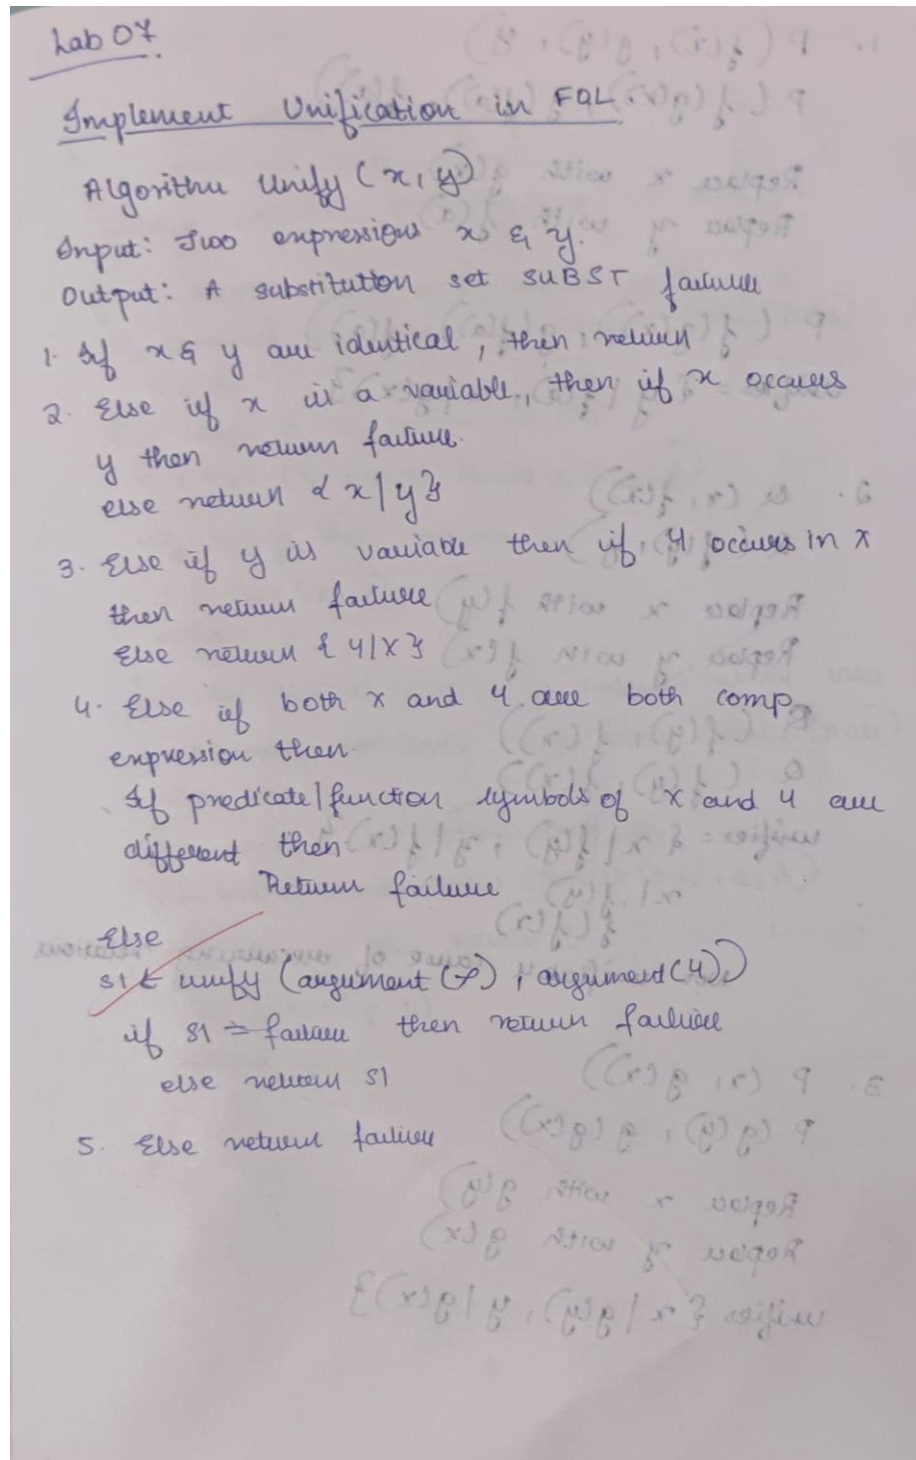 Lab 07
Implement Unification in FOL.
Algorithm Unify (x, y)
Input: Two expressions x & y.
Output: A substitution set SUBST failure
1. If x & y are identical, then return
2. Else if x is a variable, then if x occurs
y then return failure.
else return { x / y }
3. Else if y is variable then if y occurs in x
then return failure
Else return { y/x }
4. Else if both x and y are both comp
expression then
If predicate/function symbols of x and y are
different then
Return failure
Else
S1 ← unify (argument (x), argument (y))
if S1 = failure then return failure
else return S1
5. Else return failure